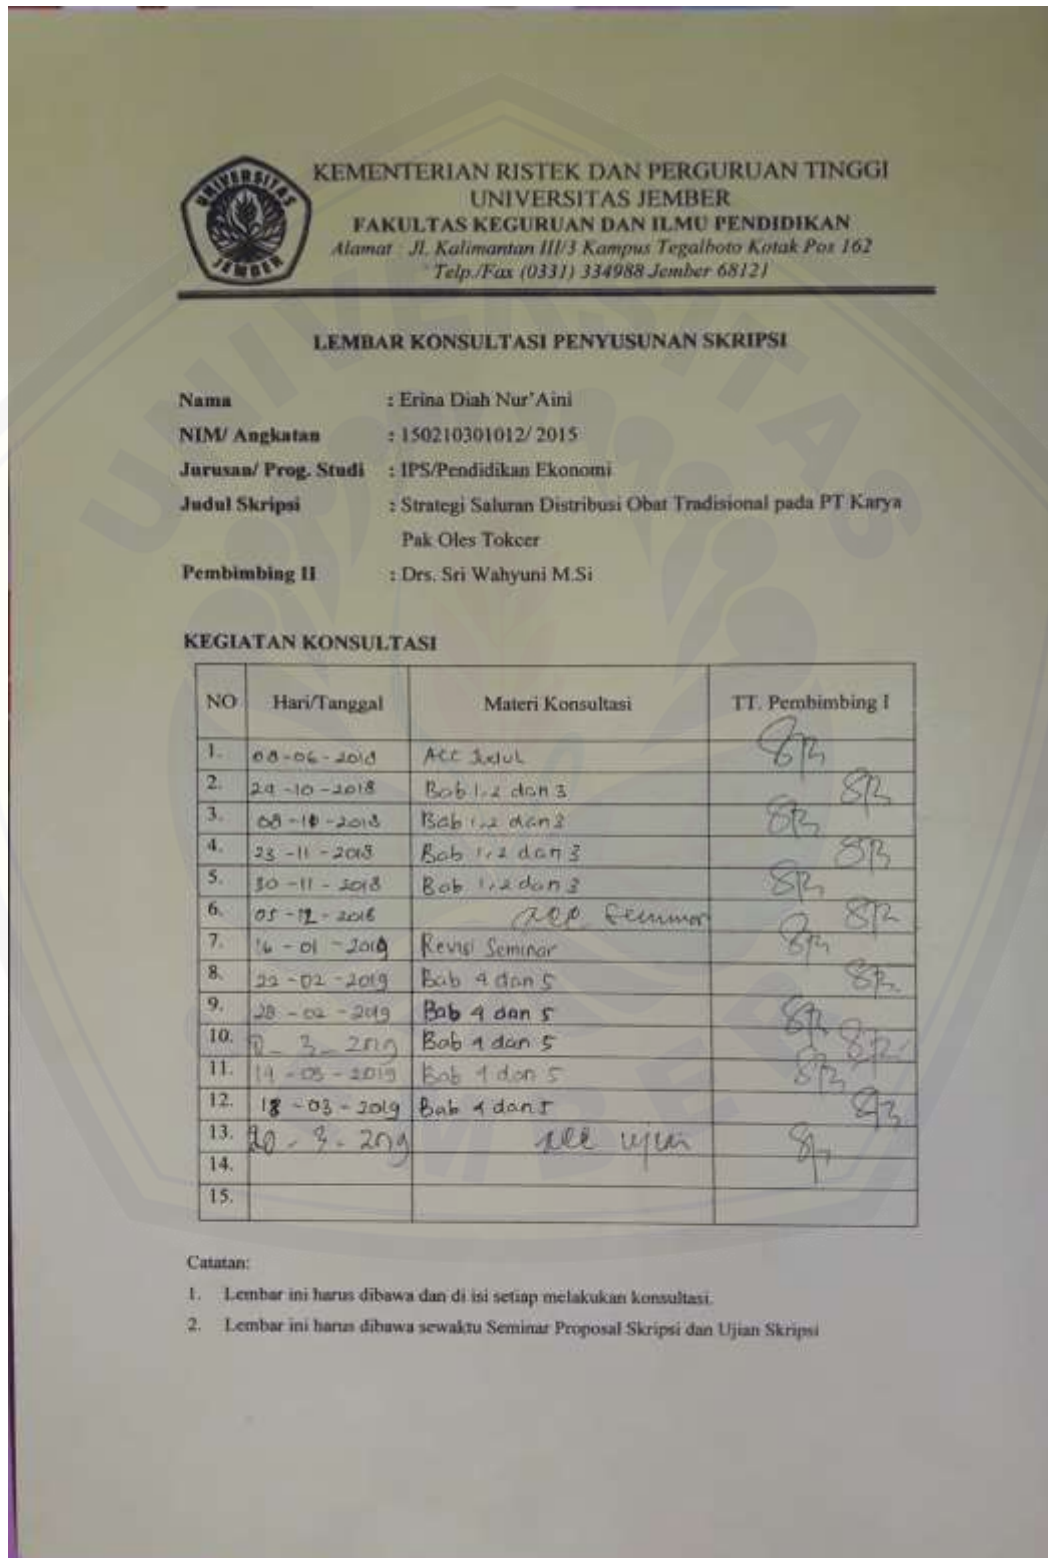 UNIVERSITAS
JEMBER
KEMENTERIAN RISTEK DAN PERGURUAN TINGGI
UNIVERSITAS JEMBER
FAKULTAS KEGURUAN DAN ILMU PENDIDIKAN
Alamat : Jl. Kalimantan III/3 Kampus Tegalboto Kotak Pos 162
Telp./Fax (0331) 334988 Jember 68121
LEMBAR KONSULTASI PENYUSUNAN SKRIPSI
Nama : Erina Diah Nur'Aini
NIM/ Angkatan : 150210301012/ 2015
Jurusan/ Prog. Studi : IPS/Pendidikan Ekonomi
Judul Skripsi : Strategi Saluran Distribusi Obat Tradisional pada PT Karya
Pak Oles Tokcer
Pembimbing II : Drs. Sri Wahyuni M.Si
KEGIATAN KONSULTASI
NO Hari/Tanggal Materi Konsultasi TT. Pembimbing I
1. 08-06-2018 ACC Judul
2. 29-10-2018 Bab 1,2 dan 3
3. Bab 1,2 dan 3
4. 23-11-2018 Bab 1,2 dan 3
5. 30-11-2018 Bab 1,2 dan 3
6. 05-12-2018 acc Seminar
7. 16-01-2019 Revisi Seminar
8. 22-02-2019 Bab 4 dan 5
9. 28-02-2019 Bab 4 dan 5
10. Bab 4 dan 5
11. 14-03-2019 Bab 4 dan 5
12. 18-03-2019 Bab 4 dan 5
13. 20-3-2019 acc ujian
14.
15.
Catatan:
1. Lembar ini harus dibawa dan di isi setiap melakukan konsultasi.
2. Lembar ini harus dibawa sewaktu Seminar Proposal Skripsi dan Ujian Skripsi
UNIVERSITAS
JEMBER